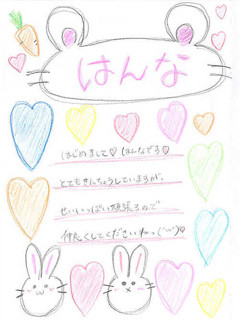 はんな
はじめまして♡はんなです
とてもきんちょうしていますが、
せいいっぱい頑張るので
仲良くしてくださいねっ(´ω`)♡